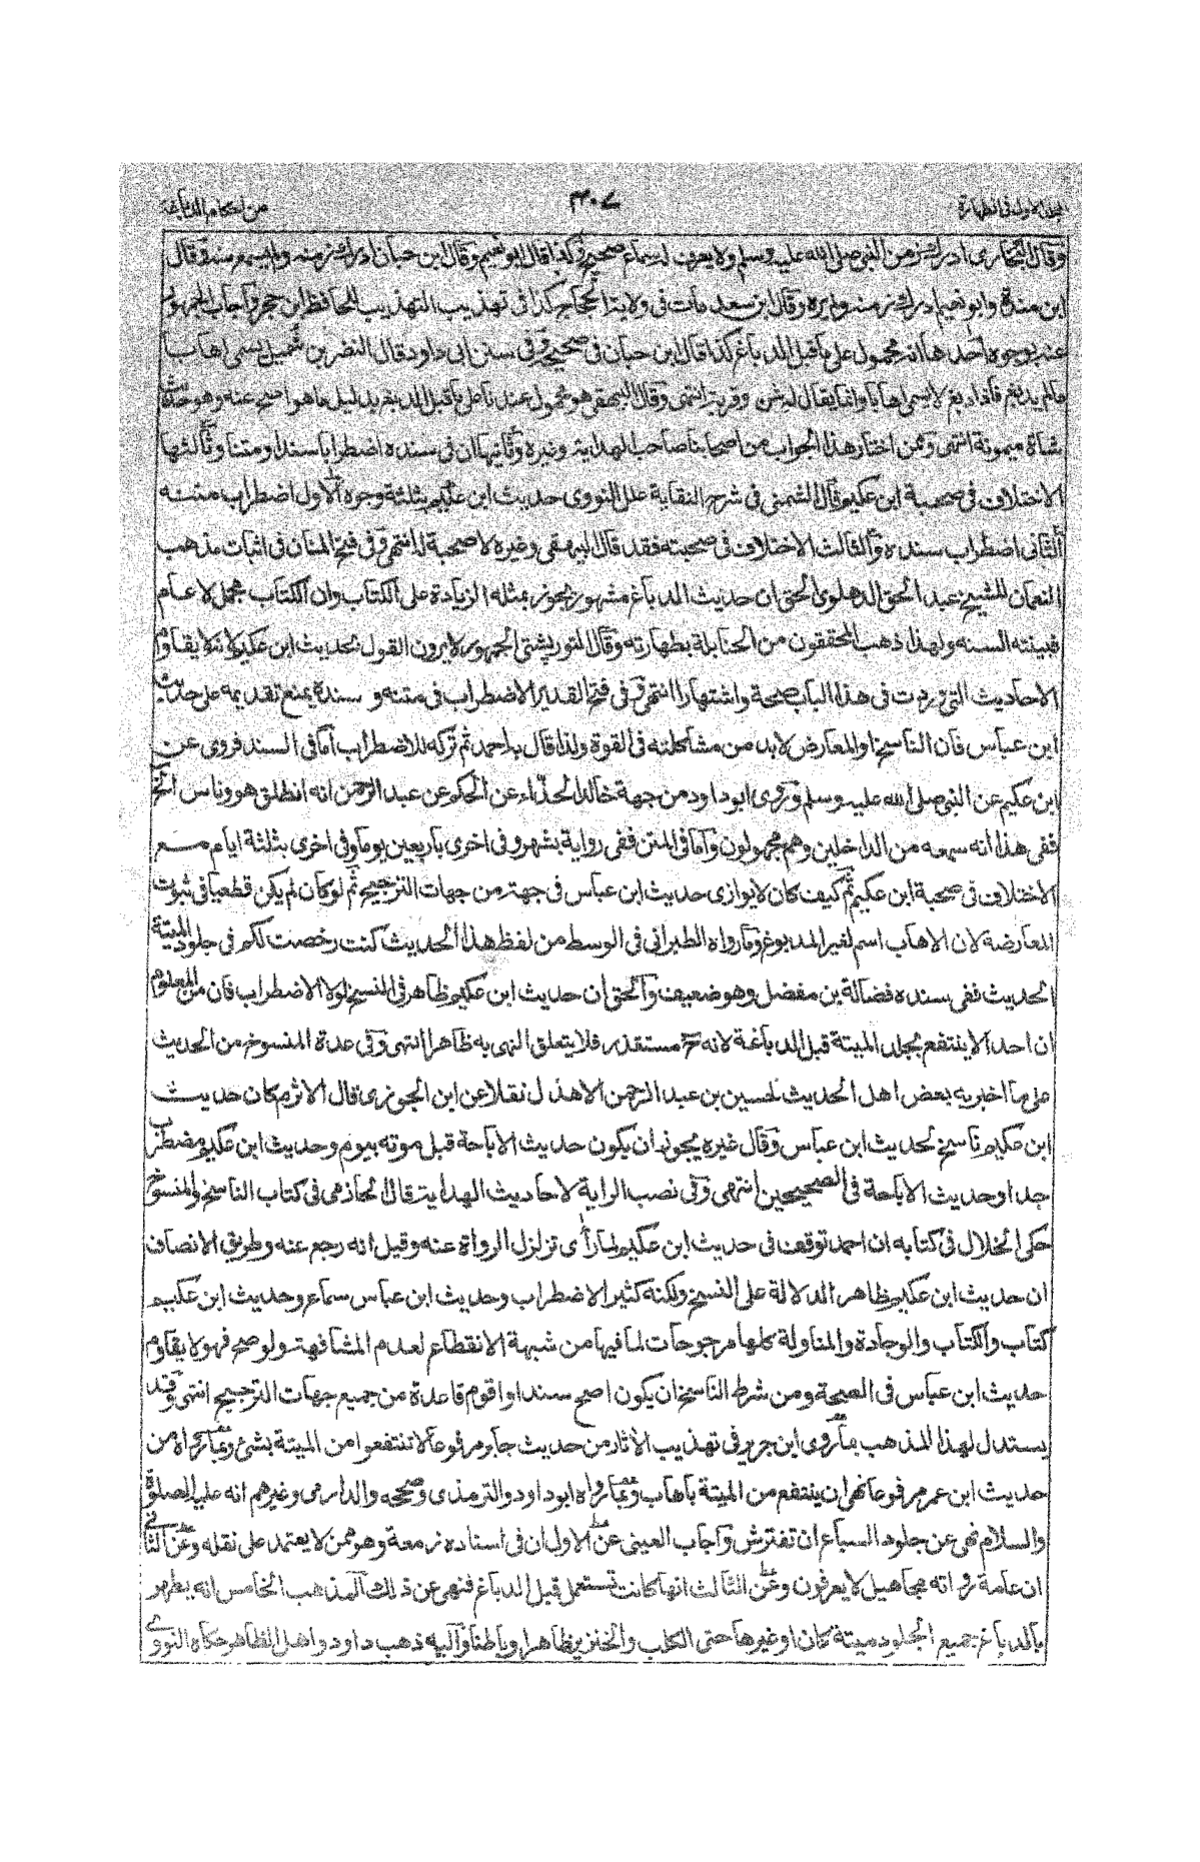 المجلد الاول فى الطهارة
٤٠٧
من احكام الدباغة
وقال البخارى ادرك زمن النبى صلى الله عليه وسلم ولا يعرف له سماع صحيح وكذا قال ابو نعيم وقال ابن حبان ادرك زمنه ولم يسمع منه وقال
ابن مندة وابو نعيم ادرك زمنه ولم يره وقال ابن سعد مات فى ولاية الحجاج كذا فى تهذيب التهذيب للحافظ ابن حجر واجاب الجمهور
عنه بوجوه احدها انه محمول على ما قبل الدباغ كذا قال ابن حبان فى صحيحه وفى سنن ابى داود قال النضر بن شميل يسمى اهابا
مالم يدبغ فاذا دبغ لا يسمى اهابا وانما يقال له شن وقربة انتهى وقال البيهقى هو محمول عندنا على ما قبل الدبغ بدليل ما هو اصح عنه وهو حديث
شاة ميمونة انتهى وممن اختار هذا الجواب من اصحابنا صاحب الهداية وغيره وثانيها ان فى سنده اضطرابا سندا ومتنا وثالثها
الاختلاف فى صحبة ابن عكيم وقال الشمنى فى شرح النقاية علل النووى حديث ابن عكيم بثلثة وجوه الاول اضطراب متنه
الثانى اضطراب سنده والثالث الاختلاف فى صحبته فقد قال البيهقى وغيره لا صحبة له انتهى وفى فتح المنان فى اثبات مذهب
النعمان للشيخ عبد الحق الدهلوى الحق ان حديث الدباغ مشهور يجوز بمثله الزيادة على الكتاب وان الكتاب مجمل لا عام
فبينته السنه ولهذا ذهب المحققون من الحنابلة بطهارته وقال التورپشتى الجمهور لا يرون القول بحديث ابن عكيم لانه لا يقاوم
الاحاديث التى وردت فى هذا الباب صحة واشتهارا انتهى وفى فتح القدير الاضطراب فى متنه و سنده يمنع تقديمه على حديث
ابن عباس فان الناسخ او المعارض لابد من مشاكلته فى القوة ولذا قال به احمد ثم تركه للاضطراب اما فى السند فروى عن
ابن عكيم عن النبى صلى الله عليه وسلم وروى ابو داود من جهة خالد الحذاء عن الحكم عن عبد الرحمن انه انطلق هو وناس الخ
ففى هذا انه سمعه من الداخلين وهم مجهولون واما فى المتن ففى رواية بشهر وفى اخرى باربعين يوما وفى اخرى بثلثة ايام مع
الاختلاف فى صحبة ابن عكيم ثم كيف كان لا يوازى حديث ابن عباس فى جهة من جهات الترجيح ثم لو كان لم يكن قطعيا فى ثبوت
المعارضة لان الاهاب اسم لغير المدبوغ وما رواه الطبرانى فى الوسط من لفظ هذا الحديث كنت رخصت لكم فى جلود الميتة
الحديث ففى سنده فضالة بن مفضل وهو ضعيف والحق ان حديث ابن عكيم ظاهر فى النسخ لولا الاضطراب فان من المعلوم
ان احدا لا ينتفع بجلد الميتة قبل الدباغة لانه ح مستقذر فلا يتعلق النهى به ظاهرا انتهى وفى عدة المنسوخ من الحديث
على ما اخبر به بعض اهل الحديث لحسين بن عبد الرحمن الاهدل نقلا عن ابن الجوزى قال الاثرم كان حديث
ابن عكيم ناسخ لحديث ابن عباس وقال غيره يجوز ان يكون حديث الاباحة قبل موته بيوم وحديث ابن عكيم مضطرب
جدا وحديث الاباحة فى الصحيحين انتهى وفى نصب الراية لاحاديث الهداية قال الحازمى فى كتاب الناسخ والمنسوخ
حكى الخلال فى كتابه ان احمد توقف فى حديث ابن عكيم لما رأى تزلزل الرواة عنه وقيل انه رجع عنه وطريق الانصاف
ان حديث ابن عكيم ظاهر الدلالة على النسخ ولكنه كثير الاضطراب وحديث ابن عباس سماع وحديث ابن عكيم
كتاب والكتاب والوجادة والمناولة كلها مرجوحات لما فيها من شبهة الانقطاع لعدم المشافهة ولو صح فهو لا يقاوم
حديث ابن عباس فى الصحة ومن شرط الناسخ ان يكون اصح سندا واقوم قاعدة من جميع جهات الترجيح انتهى وقد
يستدل لهذا المذهب بما روى ابن جرير فى تهذيب الاثار من حديث جابر مرفوعا لا تنتفعوا من الميتة بشئ وبما رواه من
حديث ابن عمر مرفوعا نهى ان ينتفع من الميتة باهاب وبما رواه ابو داود والترمذى وصححه والدارمى وغيرهم انه عليه الصلوة
والسلام نهى عن جلود السباع ان تفترش واجاب العينى عن الاول ان فى اسناده زمعة وهو ممن لا يعتمد على نقله وعن الثانى
ان عامة رواته مجاهيل لا يعرفون وعن الثالث انها كانت تستعمل قبل الدباغ فنهى عن ذلك المذهب الخامس انه يطهر
بالدباغ جميع الجلود ميتة كان او غيرها حتى الكلب والخنزير ظاهرا وباطنا واليه ذهب داود واهل الظاهر حكاه النووى